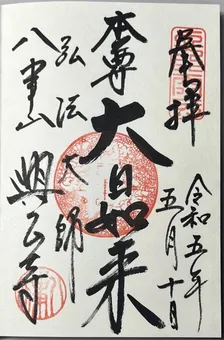 奉拝
令和五年
五月十日
本尊
大日如来
弘法大師
八事山
興正寺